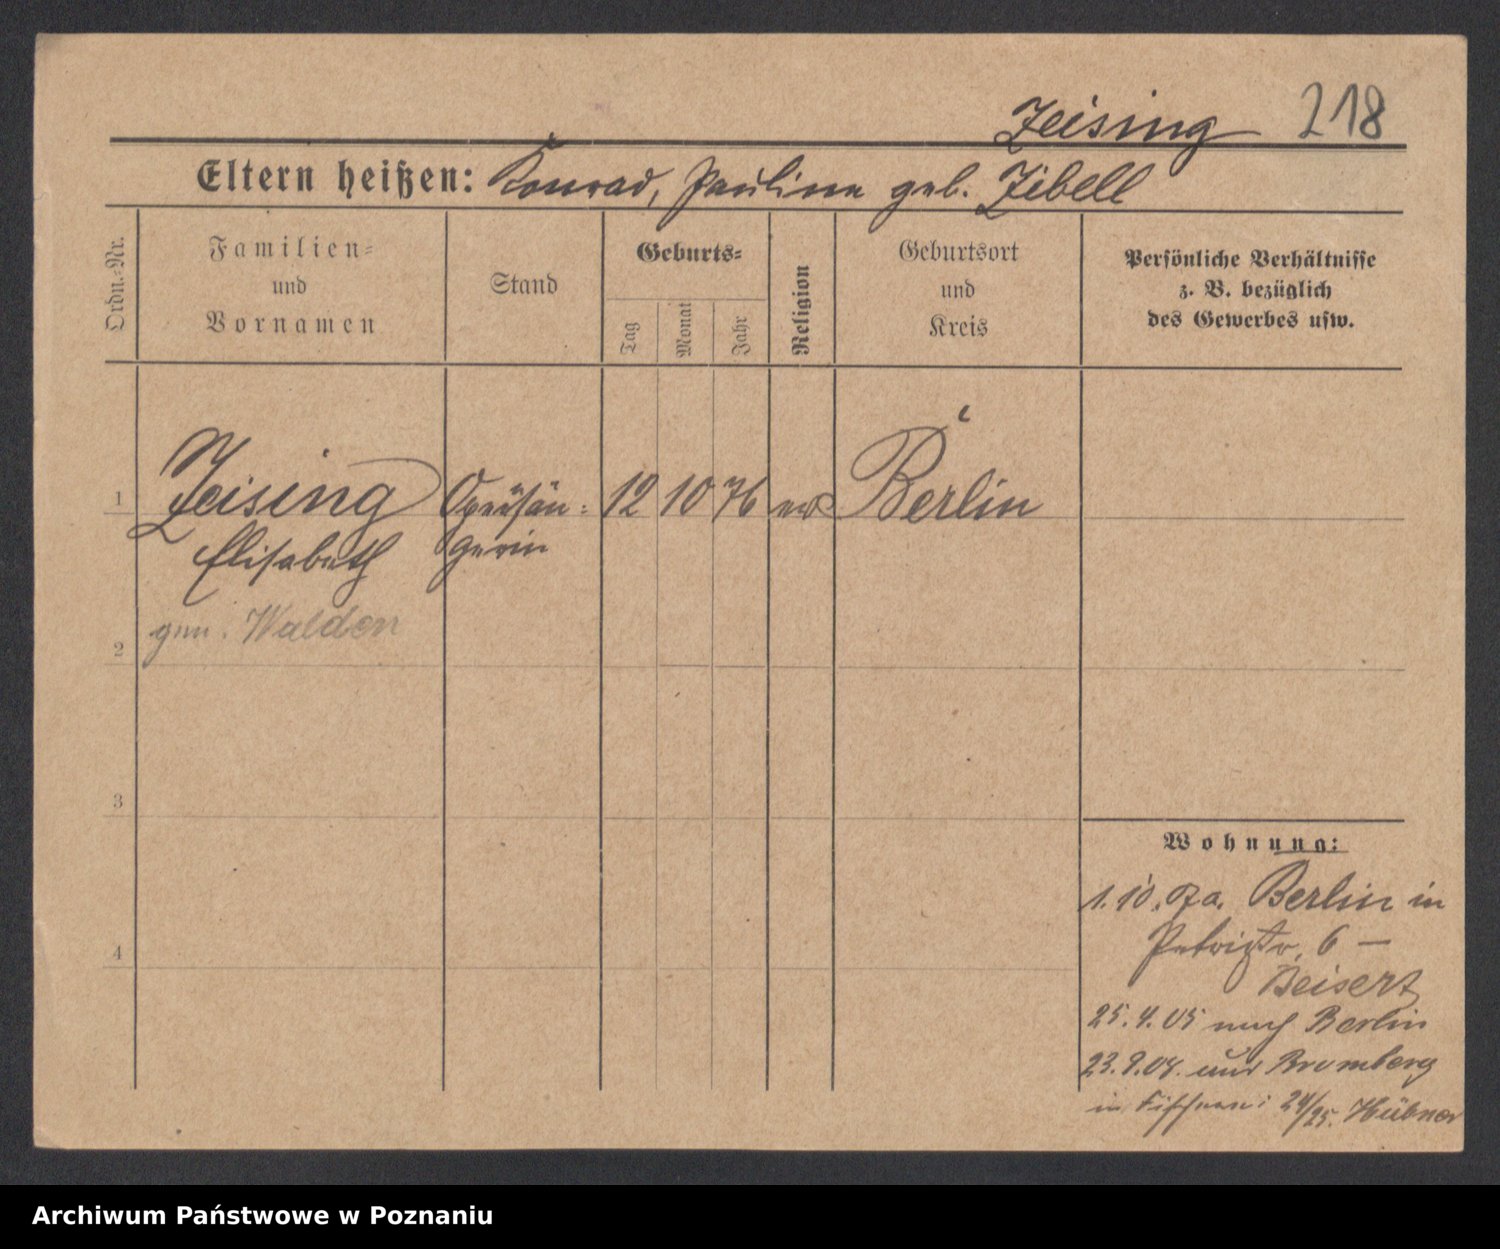 Zeising 218
Eltern heißen: Konrad, Pauline geb. Zibell
Ordn.=Nr.
Familien=
und
Vornamen
Stand
Geburts=
Tag
Monat
Jahr
Religion
Geburtsort
und
Kreis
Persönliche Verhältnisse
z. B. bezüglich
des Gewerbes usw.
1 Zeising Opersän= 12 10 76 Berlin
Elisabeth gerin
gen. Walden
2
3
4
Wohnung:
1. 10. Berlin in
Petristr. 6 —
Beisert
25. 4. 05 nach Berlin
23. 9. 08. Bromberg
in 24/25. Hübner
Archiwum Państwowe w Poznaniu